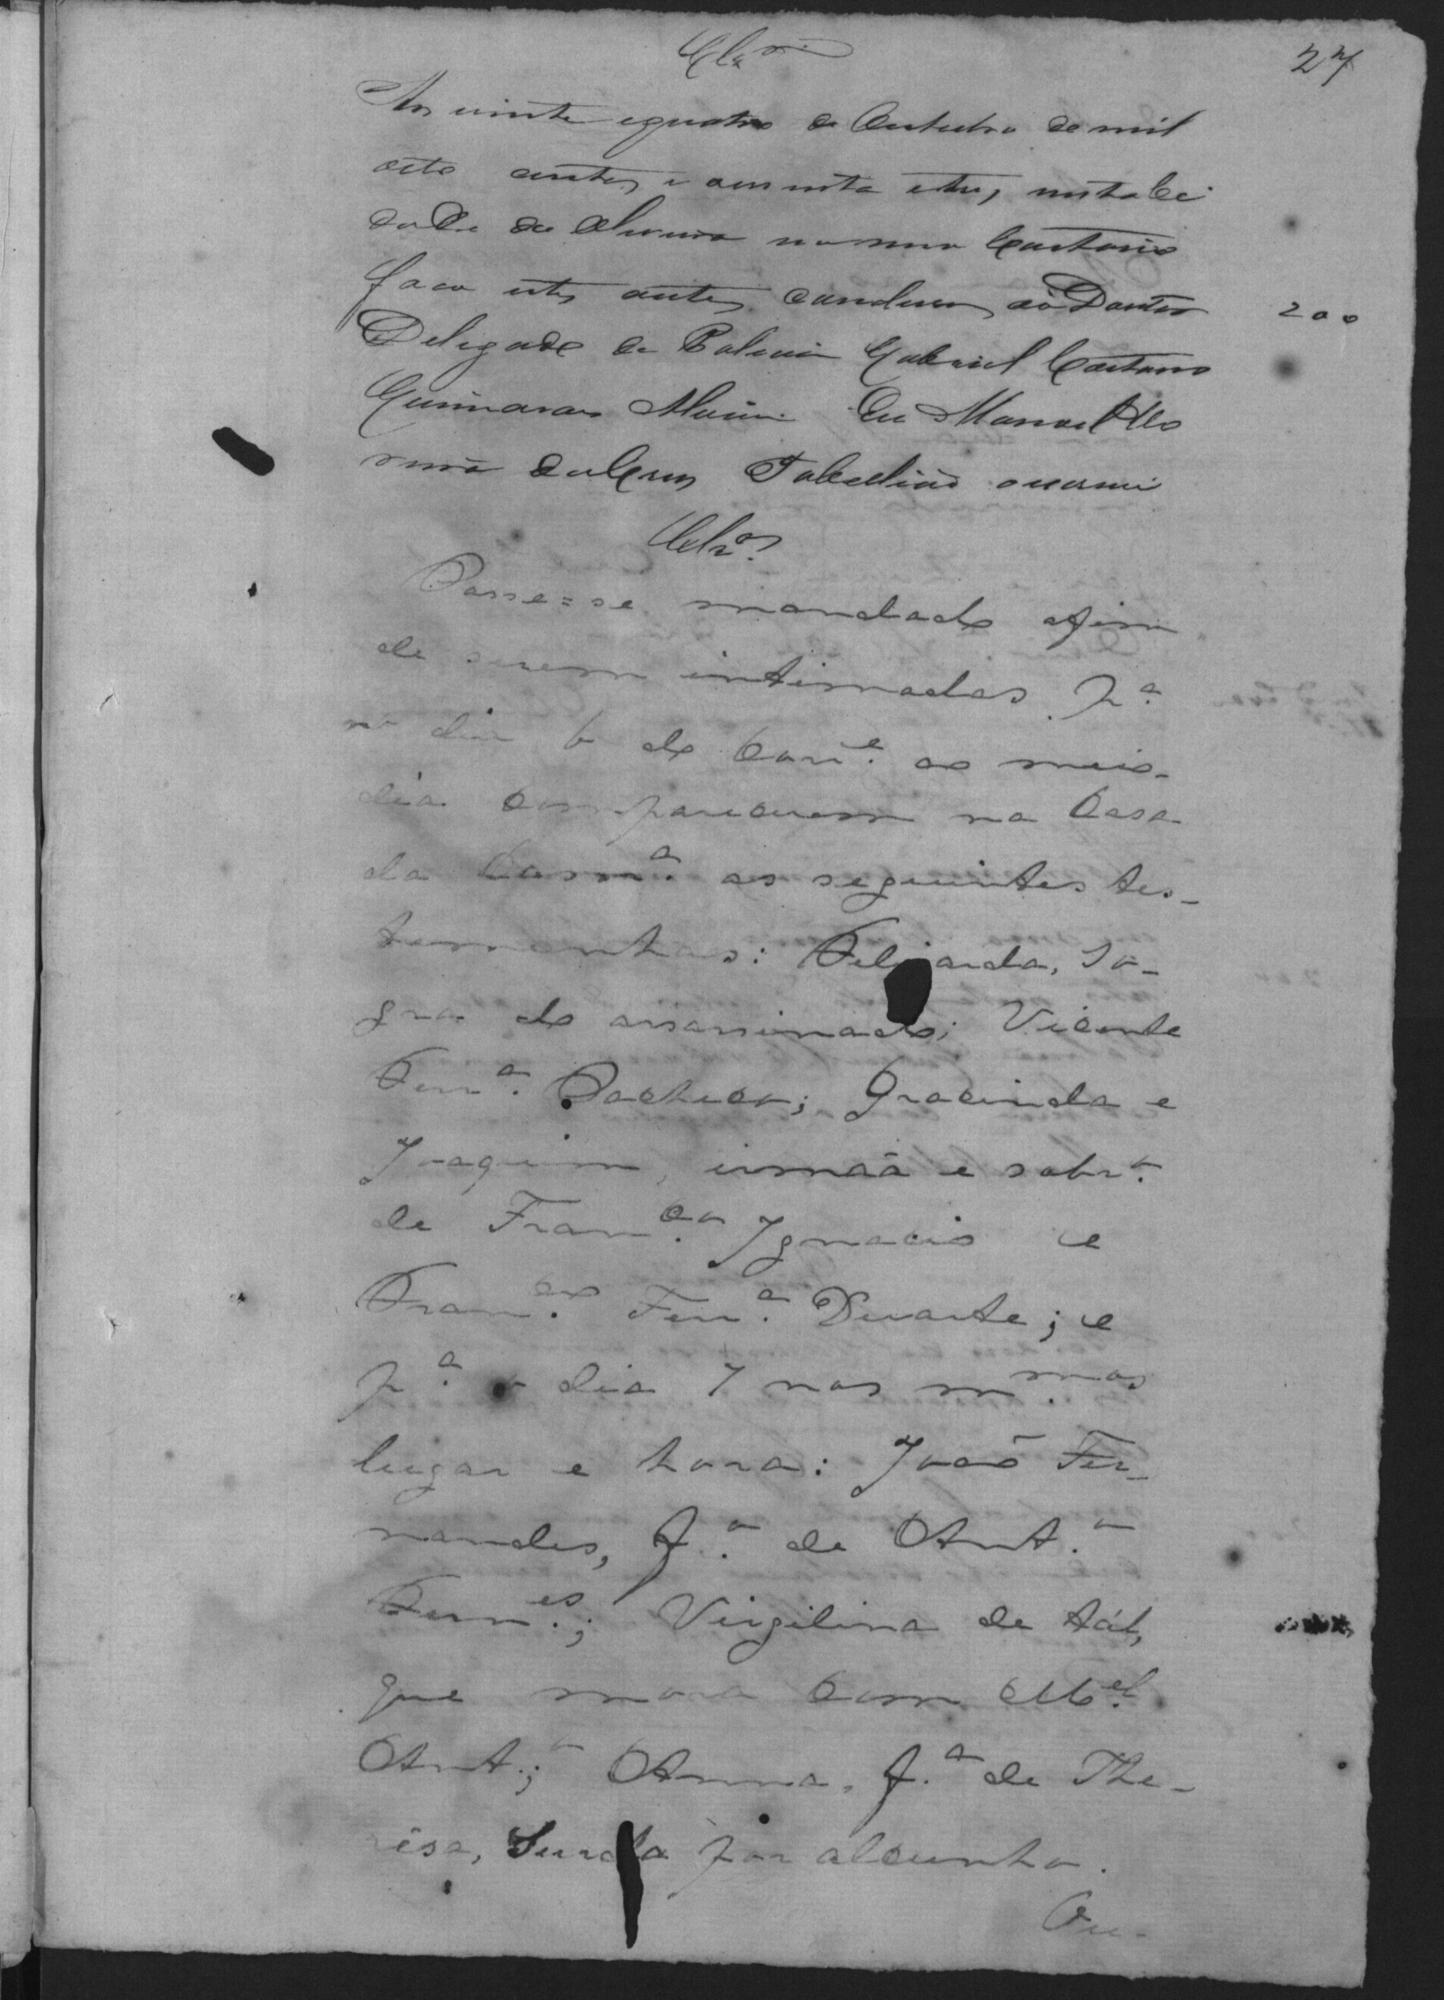 Clz.os
27
Aos vinte equatro de Outubro de mil
oito centos e oitenta etres, nesta Ci
dade de na meu Cartorio
faço estes autos conclusos ao Doutor
200
Delegado de Policia Gabriel Caetano
Guimaraes Eu Manoel
da Cruz Tabelliaõ o escrevi
Clz.os
Passe=se mandado afim
de serem intimadas p.a
no dia 6 do Corr.e ao meio-
dia comparecerem na Casa
da Cam.a as seguintes tes-
temunhas: Felizarda, So-
gra do assassinado; Vicente
Ferr.a Pacheco; Gracinda e
Joaquim, irmaã e sobr.o
de Fran.co Ignacio e
Fran.co Ferr.a Duarte; e
p.a o dia 7 nos m.mos
lugar e hora: Joaõ Fer-
nandes, f.o de Ant.o
Fern.es; Virgilina de tál,
que mora com M.el
Ant.o; Anna, f.a de The-
resa, Surda por alcunha.
Ou-